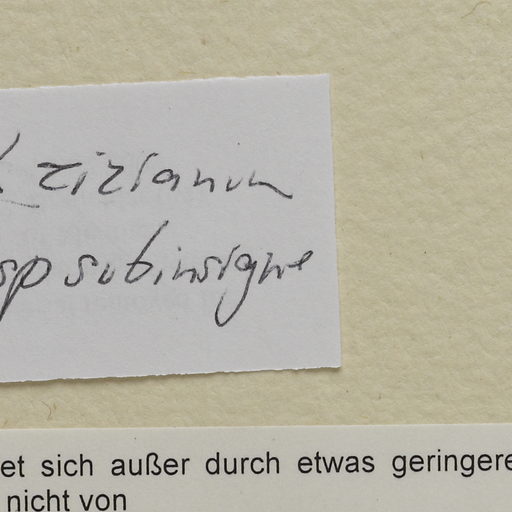 zizianum
ssp subinsigne
et sich außer durch etwas geringere
nicht von